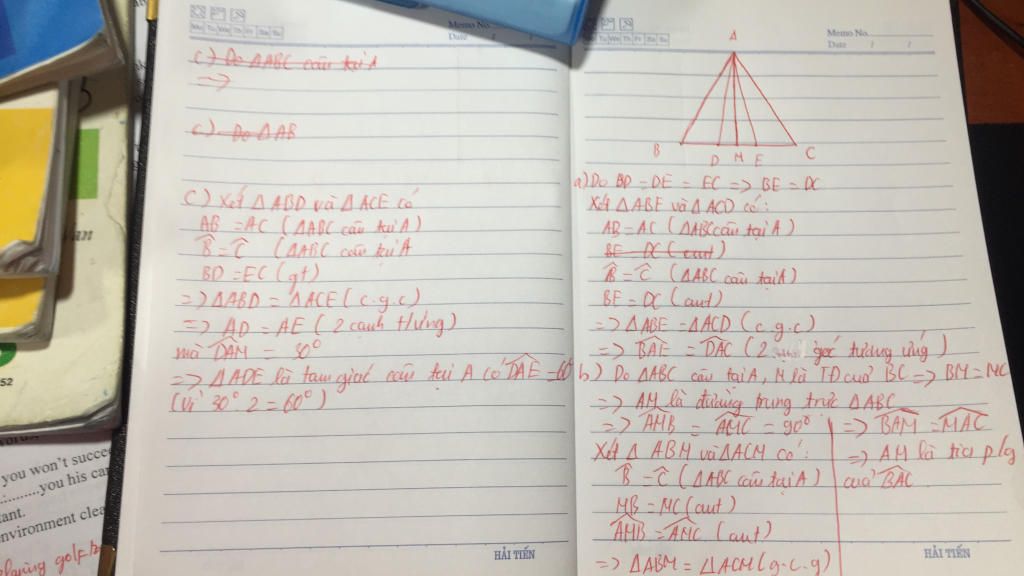 c) Do ΔABC cân tại A
=>
c) Do ΔAB
C) Xét ΔABD và ΔACE có
AB = AC (ΔABC cân tại A)
B̂ = Ĉ (ΔABC cân tại A
BD = EC (gt)
=> ΔABD = ΔACE (c.g.c)
=> AD = AE (2 cạnh t/ứng)
mà DAM = 30°
=> ΔADE là tam giác cân tại A có DAE = 60°
(vì 30°. 2 = 60°)
HẢI TIẾN
Memo No.
Date / /
Mo Tu We Th Fr Sa Su
A
B D M E C
a) Do BD = DE = EC => BE = DC
Xét ΔABE và ΔACD có:
AB = AC (ΔABC cân tại A)
BE = DC (cmt)
B̂ = Ĉ (ΔABC cân tại A)
BE = DC (cmt)
=> ΔABE = ΔACD (c.g.c)
=> BAE = DAC (2 góc tương ứng)
b) Do ΔABC cân tại A, M là TĐ của BC => BM = MC
=> AM là đường trung trực ΔABC
=> AMB = AMC = 90°
Xét Δ ABM và ΔACM có:
B̂ = Ĉ (ΔABC cân tại A)
MB = MC (cmt)
AMB = AMC (cmt)
=> ΔABM = ΔACM (g.c.g)
=> BAM = MAC
=> AM là tia p/g
của BAC
HẢI TIẾN
Memo No.
Date / /
Tu We Th Fr Sa Su
52
you won't succe
you his car
tant.
nvironment clea
playing golf